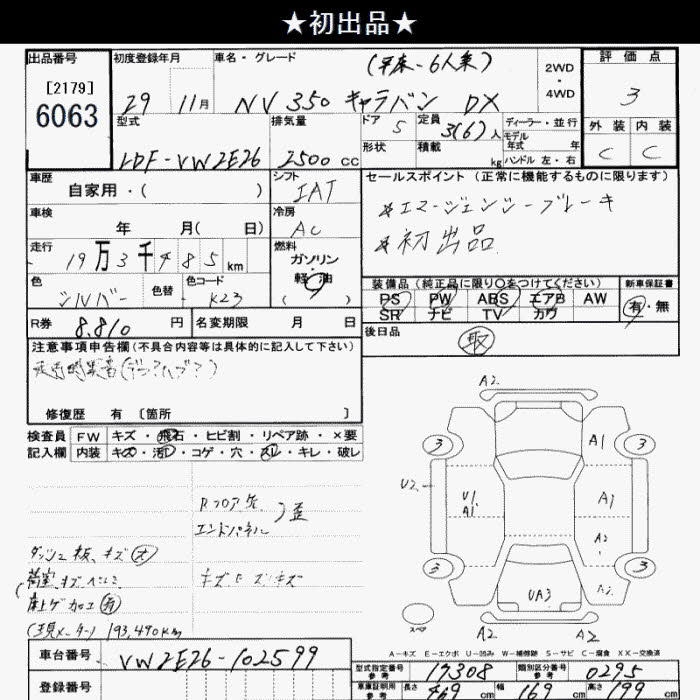 ★初出品★
出品番号 初度登録年月 車名・グレード (平床-6人乗) 2WD・4WD 評価点
[2179]
6063
29 11月 NV350 キャラバン DX 3
型式 排気量 ドア 5 定員 3(6)人 ディーラー・並行 モデル年式 年 外装 内装
LDF-VW2E26 2500cc 形状 積載 kg ハンドル 左・右 C C
車歴 自家用・( ) シフト IAT セールスポイント (正常に機能するものに限ります)
車検 年 月( 日) 冷房 AC *エマージェンシーブレーキ
走行 19万3千485km 燃料 ガソリン・軽油 ( ) *初出品
色 シルバー 色替 色コード K23 装備品 (純正品に限り○をつけてください) 新車保証書
PS PW ABS エアB AW 有・無
SR ナビ TV カワ
R券 8,810円 名変期限 月 日 後日品 取
注意事項申告欄(不具合内容等は具体的に記入して下さい)
走行時異音
修復歴 有 [箇所 ]
検査員記入欄 FW キズ・飛石・ヒビ割・リペア跡・×要
内装 キズ・汚れ・コゲ・穴・スレ・キレ・破レ
A2
3 A1 3
U2 U1 A1 A1
A2
3 3
UA3
A2 A2
Rフロア先
エンドパネル )歪
ダッシュ板、キズ(大)
荷室キズヘコミ
床上ゲ加工(有)
(現メーター) 193,490km
A-キズ E-エクボ U-凹み W-補修跡 S-サビ C-腐食 XX-交換済
車台番号 VW2E26-102599
型式指定番号 参考 17308 類別区分番号 参考 0295
登録番号 車庫証明用 参考 長さ 469cm 幅 169cm 高さ 199cm